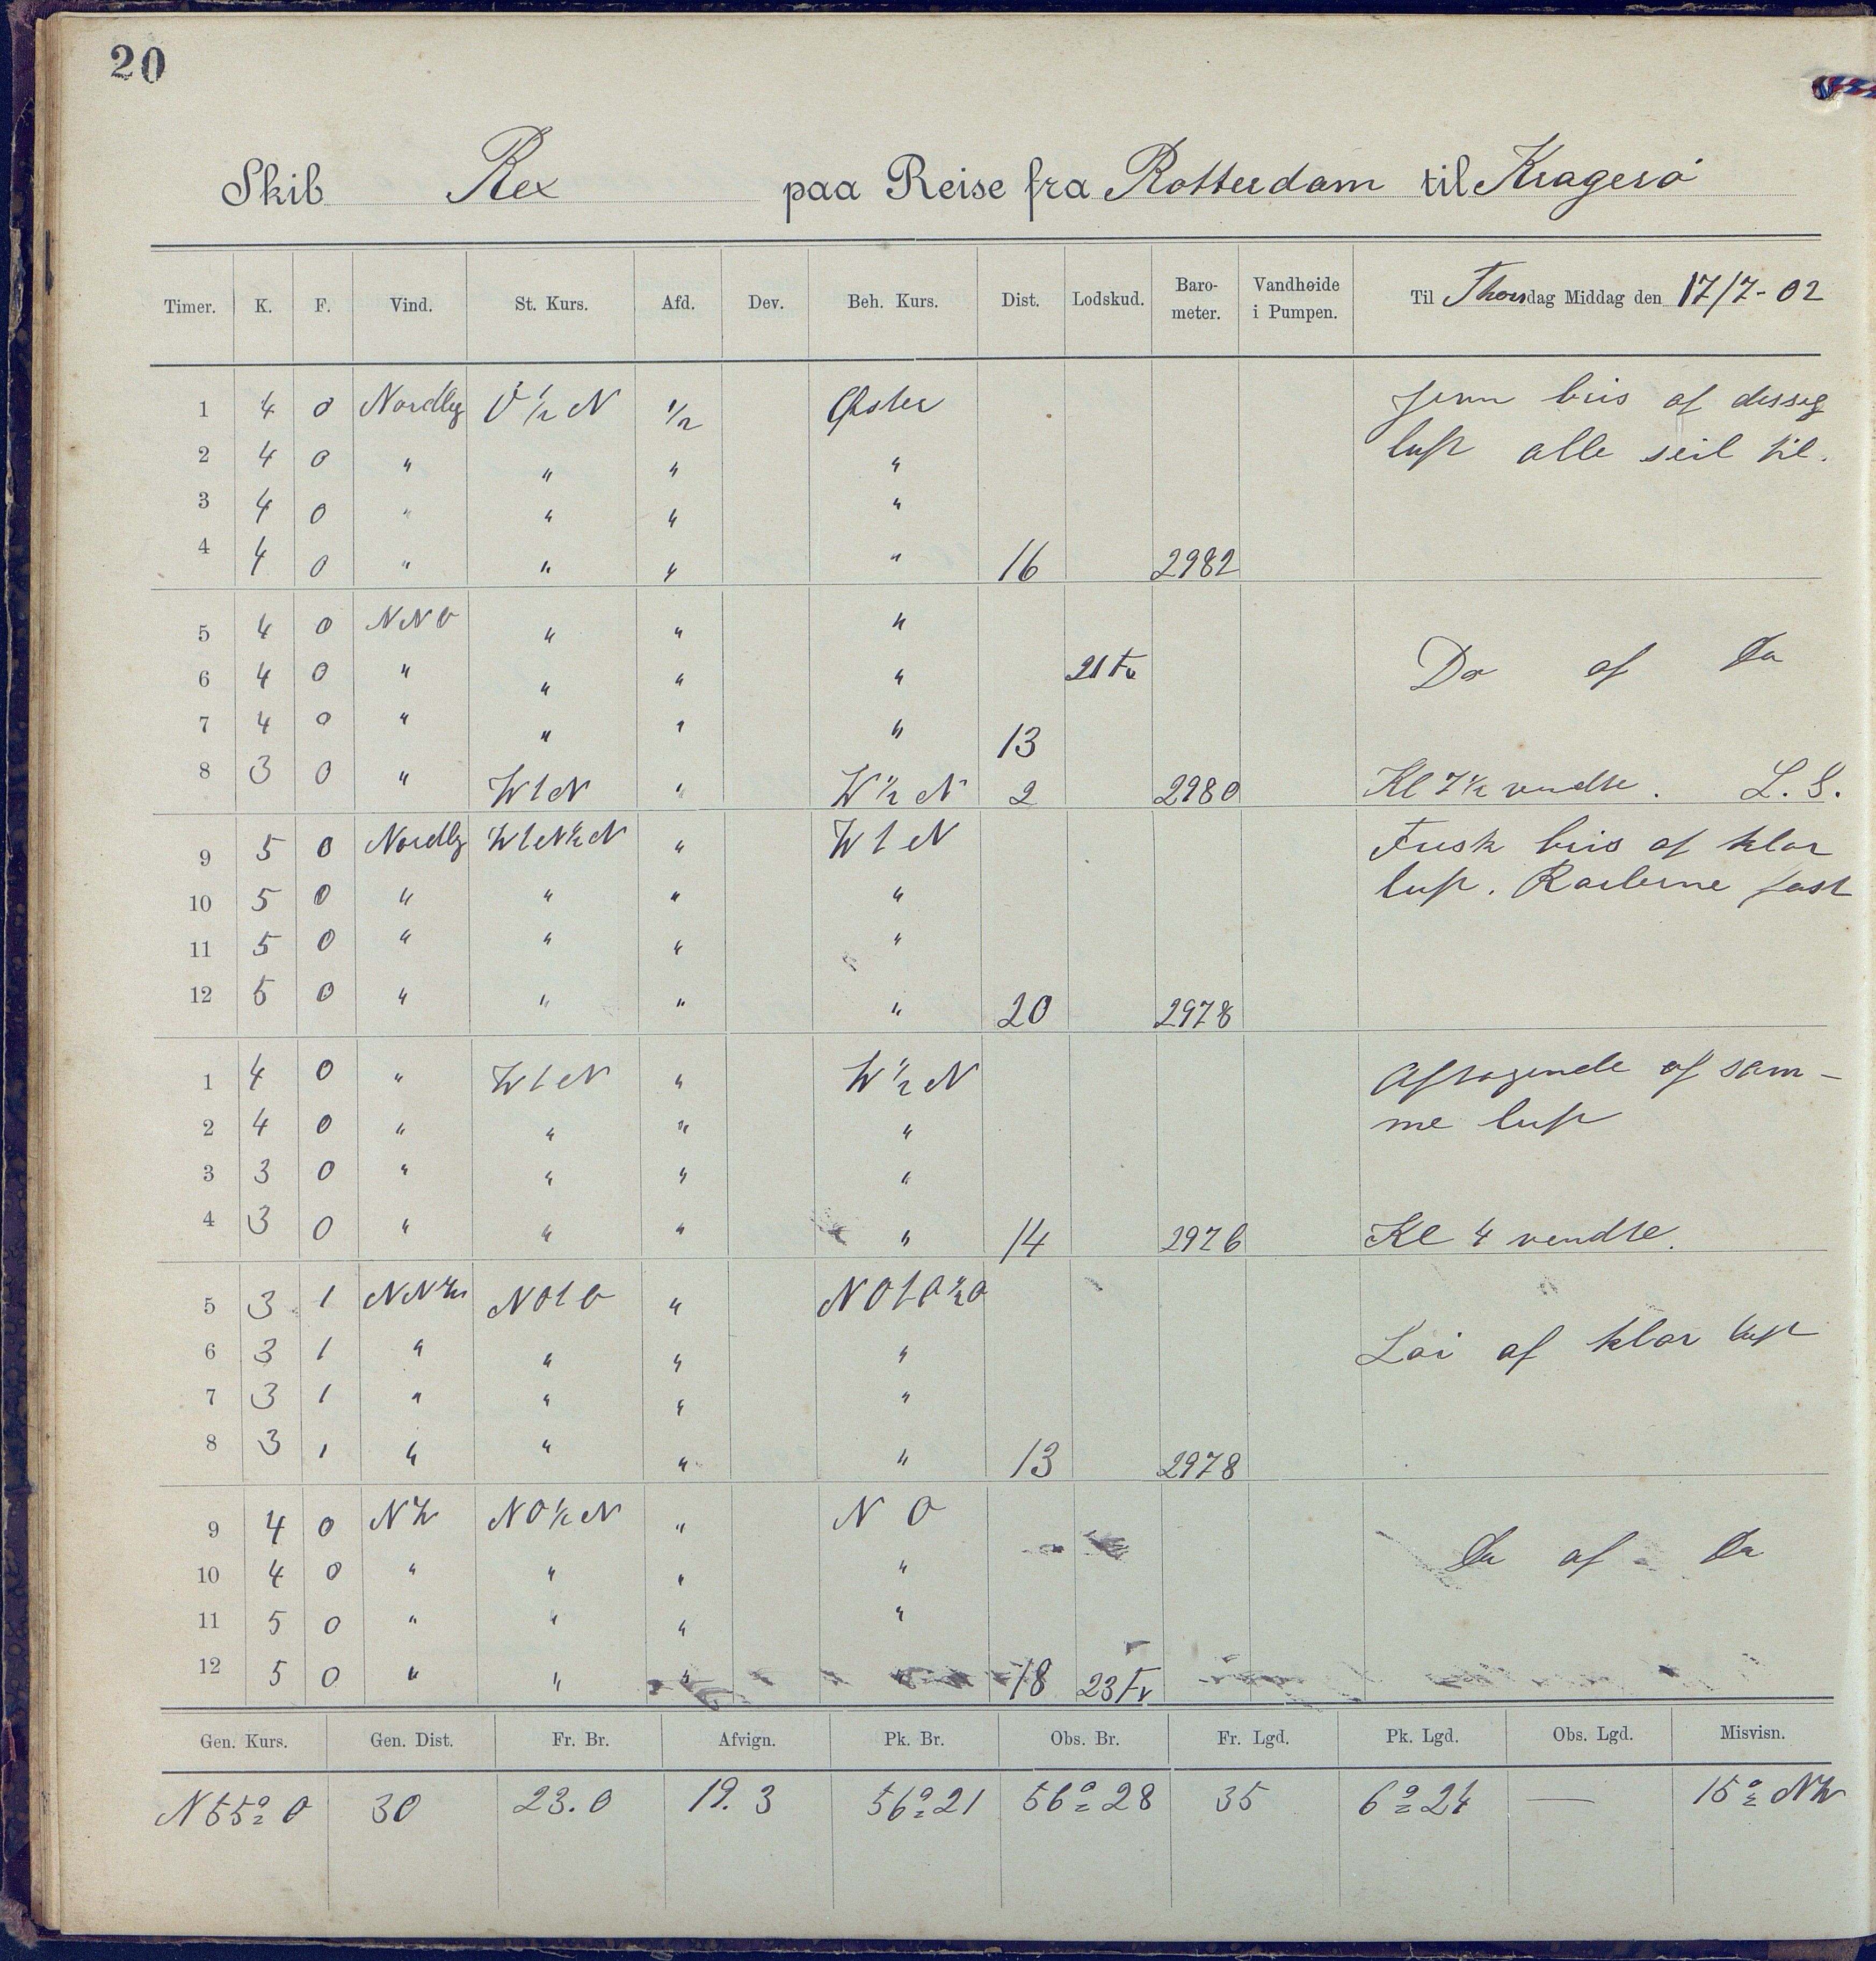 20
Skib Rex paa Reise fra Rotterdam til Kragerø
Timer. K. F. Vind. St. Kurs. Afd. Dev. Beh. Kurs. Dist. Lodskud. Baro-meter. Vandhøide i Pumpen. Til Thorsdag Middag den 17/7-02
1 4 0 Nordlig O ½ N ½ Øster Jevn bris af disseg
2 4 0 " " " " luft alle seil til.
3 4 0 " " " "
4 4 0 " " " " 16 2982
5 4 0 NNO " " "
6 4 0 " " " " 21 Fv Do af Do
7 4 0 " " " " 13
8 3 0 " WtN " W ½ N 2 2980 Kl 7½ vendte. L. S.
9 5 0 Nordlig WtN½N " WtN Frisk bris af klar
10 5 0 " " " " luft. Railerne fast
11 5 0 " " " "
12 5 0 " " " " 20 2978
1 4 0 " WtN " W ½ N Aftagende af sam-
2 4 0 " " " " me luft
3 3 0 " " " "
4 3 0 " " " " 14 2976 Kl 4 vendte.
5 3 1 NNW NOtO " NOtO½O
6 3 1 " " " " Loi af klar luft
7 3 1 " " " "
8 3 1 " " " " 13 2978
9 4 0 NW NO½N " N O
10 4 0 " " " " Do af Do
11 5 0 " " " "
12 5 0 " " " " 18 23 Fv
Gen. Kurs. Gen. Dist. Fr. Br. Afvign. Pk. Br. Obs. Br. Fr. Lgd. Pk. Lgd. Obs. Lgd. Misvisn.
N 55° O 30 23.0 19.3 56° 21 56° 28 35 6° 24 — 15° NW